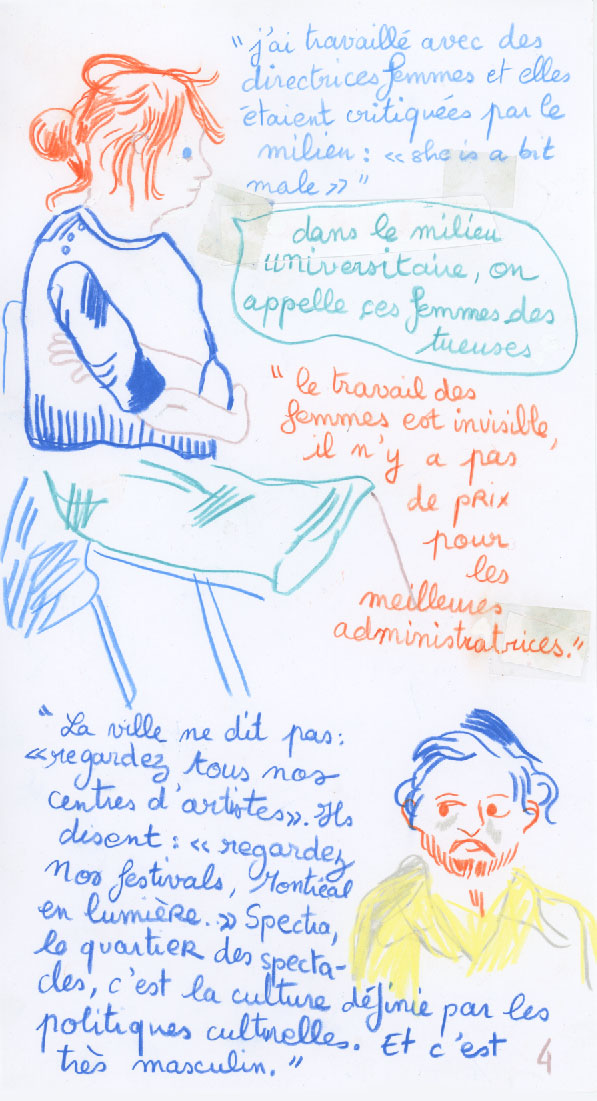 "j'ai travaillé avec des
directrices femmes et elles
étaient critiquées par le
milieu : « she is a bit
male » "
dans le milieu
universitaire, on
appelle ces femmes des
tueuses
" le travail des
femmes est invisible,
il n'y a pas
de pRix
pour
les
meilleures
administratrices."
" La ville ne dit pas :
« regardez tous nos
centres d'artistes ». Ils
disent : « regardez
nos festivals, Montréal
en lumière. » Spectra,
le quartier des specta-
cles, c'est la culture définie par les
politiques culturelles. Et c'est
très masculin. "
4